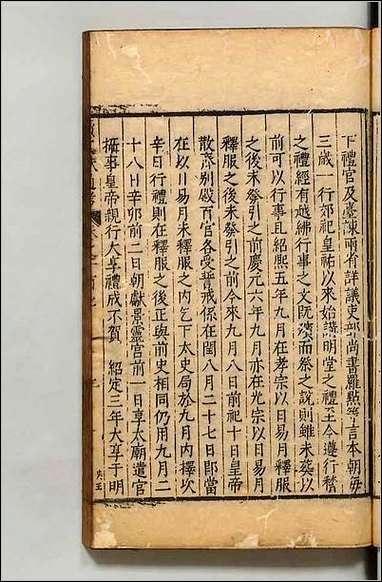 下禮官及臺諫兩省詳議吏部尚書羅點等言本朝每
三歲一行郊祀皇祐以來始講明堂之禮至今遵行稽
之禮經有越紼行事之文既殯而祭之說則雖未葬以
前可以行事且紹熙五年九月在孝宗以日易月釋服
之後未發引之前慶元六年九月亦在光宗以日易月
釋服之後未發引之前今來九月八日前祀十日皇帝
散齋別殿百官各受誓戒係在閏八月二十七日即當
在以日易月未釋服之內乞下太史局於九月內擇次
辛日行禮則在釋服之後正與前史相同仍用九月二
十八日辛卯前二日朝獻景靈宮前一日享太廟遣官
攝事皇帝親行大享禮成不賀 紹定三年大享于明